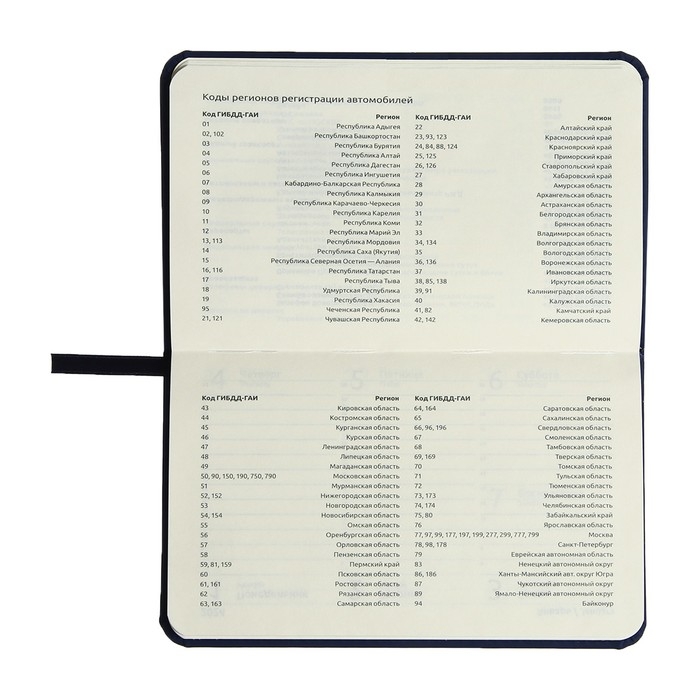 Коды регионов регистрации автомобилей
Код ГИБДД-ГАИ Регион
01 Республика Адыгея
02, 102 Республика Башкортостан
03 Республика Бурятия
04 Республика Алтай
05 Республика Дагестан
06 Республика Ингушетия
07 Кабардино-Балкарская Республика
08 Республика Калмыкия
09 Республика Карачаево-Черкесия
10 Республика Карелия
11 Республика Коми
12 Республика Марий Эл
13, 113 Республика Мордовия
14 Республика Саха (Якутия)
15 Республика Северная Осетия — Алания
16, 116 Республика Татарстан
17 Республика Тыва
18 Удмуртская Республика
19 Республика Хакасия
95 Чеченская Республика
21, 121 Чувашская Республика
Код ГИБДД-ГАИ Регион
22 Алтайский край
23, 93, 123 Краснодарский край
24, 84, 88, 124 Красноярский край
25, 125 Приморский край
26, 126 Ставропольский край
27 Хабаровский край
28 Амурская область
29 Архангельская область
30 Астраханская область
31 Белгородская область
32 Брянская область
33 Владимирская область
34, 134 Волгоградская область
35 Вологодская область
36, 136 Воронежская область
37 Ивановская область
38, 85, 138 Иркутская область
39, 91 Калининградская область
40 Калужская область
41, 82 Камчатский край
42, 142 Кемеровская область
Код ГИБДД-ГАИ Регион
43 Кировская область
44 Костромская область
45 Курганская область
46 Курская область
47 Ленинградская область
48 Липецкая область
49 Магаданская область
50, 90, 150, 190, 750, 790 Московская область
51 Мурманская область
52, 152 Нижегородская область
53 Новгородская область
54, 154 Новосибирская область
55 Омская область
56 Оренбургская область
57 Орловская область
58 Пензенская область
59, 81, 159 Пермский край
60 Псковская область
61, 161 Ростовская область
62 Рязанская область
63, 163 Самарская область
Код ГИБДД-ГАИ Регион
64, 164 Саратовская область
65 Сахалинская область
66, 96, 196 Свердловская область
67 Смоленская область
68 Тамбовская область
69, 169 Тверская область
70 Томская область
71 Тульская область
72 Тюменская область
73, 173 Ульяновская область
74, 174 Челябинская область
75, 80 Забайкальский край
76 Ярославская область
77, 97, 99, 177, 197, 199, 277, 299, 777, 799 Москва
78, 98, 178 Санкт-Петербург
79 Еврейская автономная область
83 Ненецкий автономный округ
86, 186 Ханты-Мансийский авт. округ Югра
87 Чукотский автономный округ
89 Ямало-Ненецкий автономный округ
94 Байконур